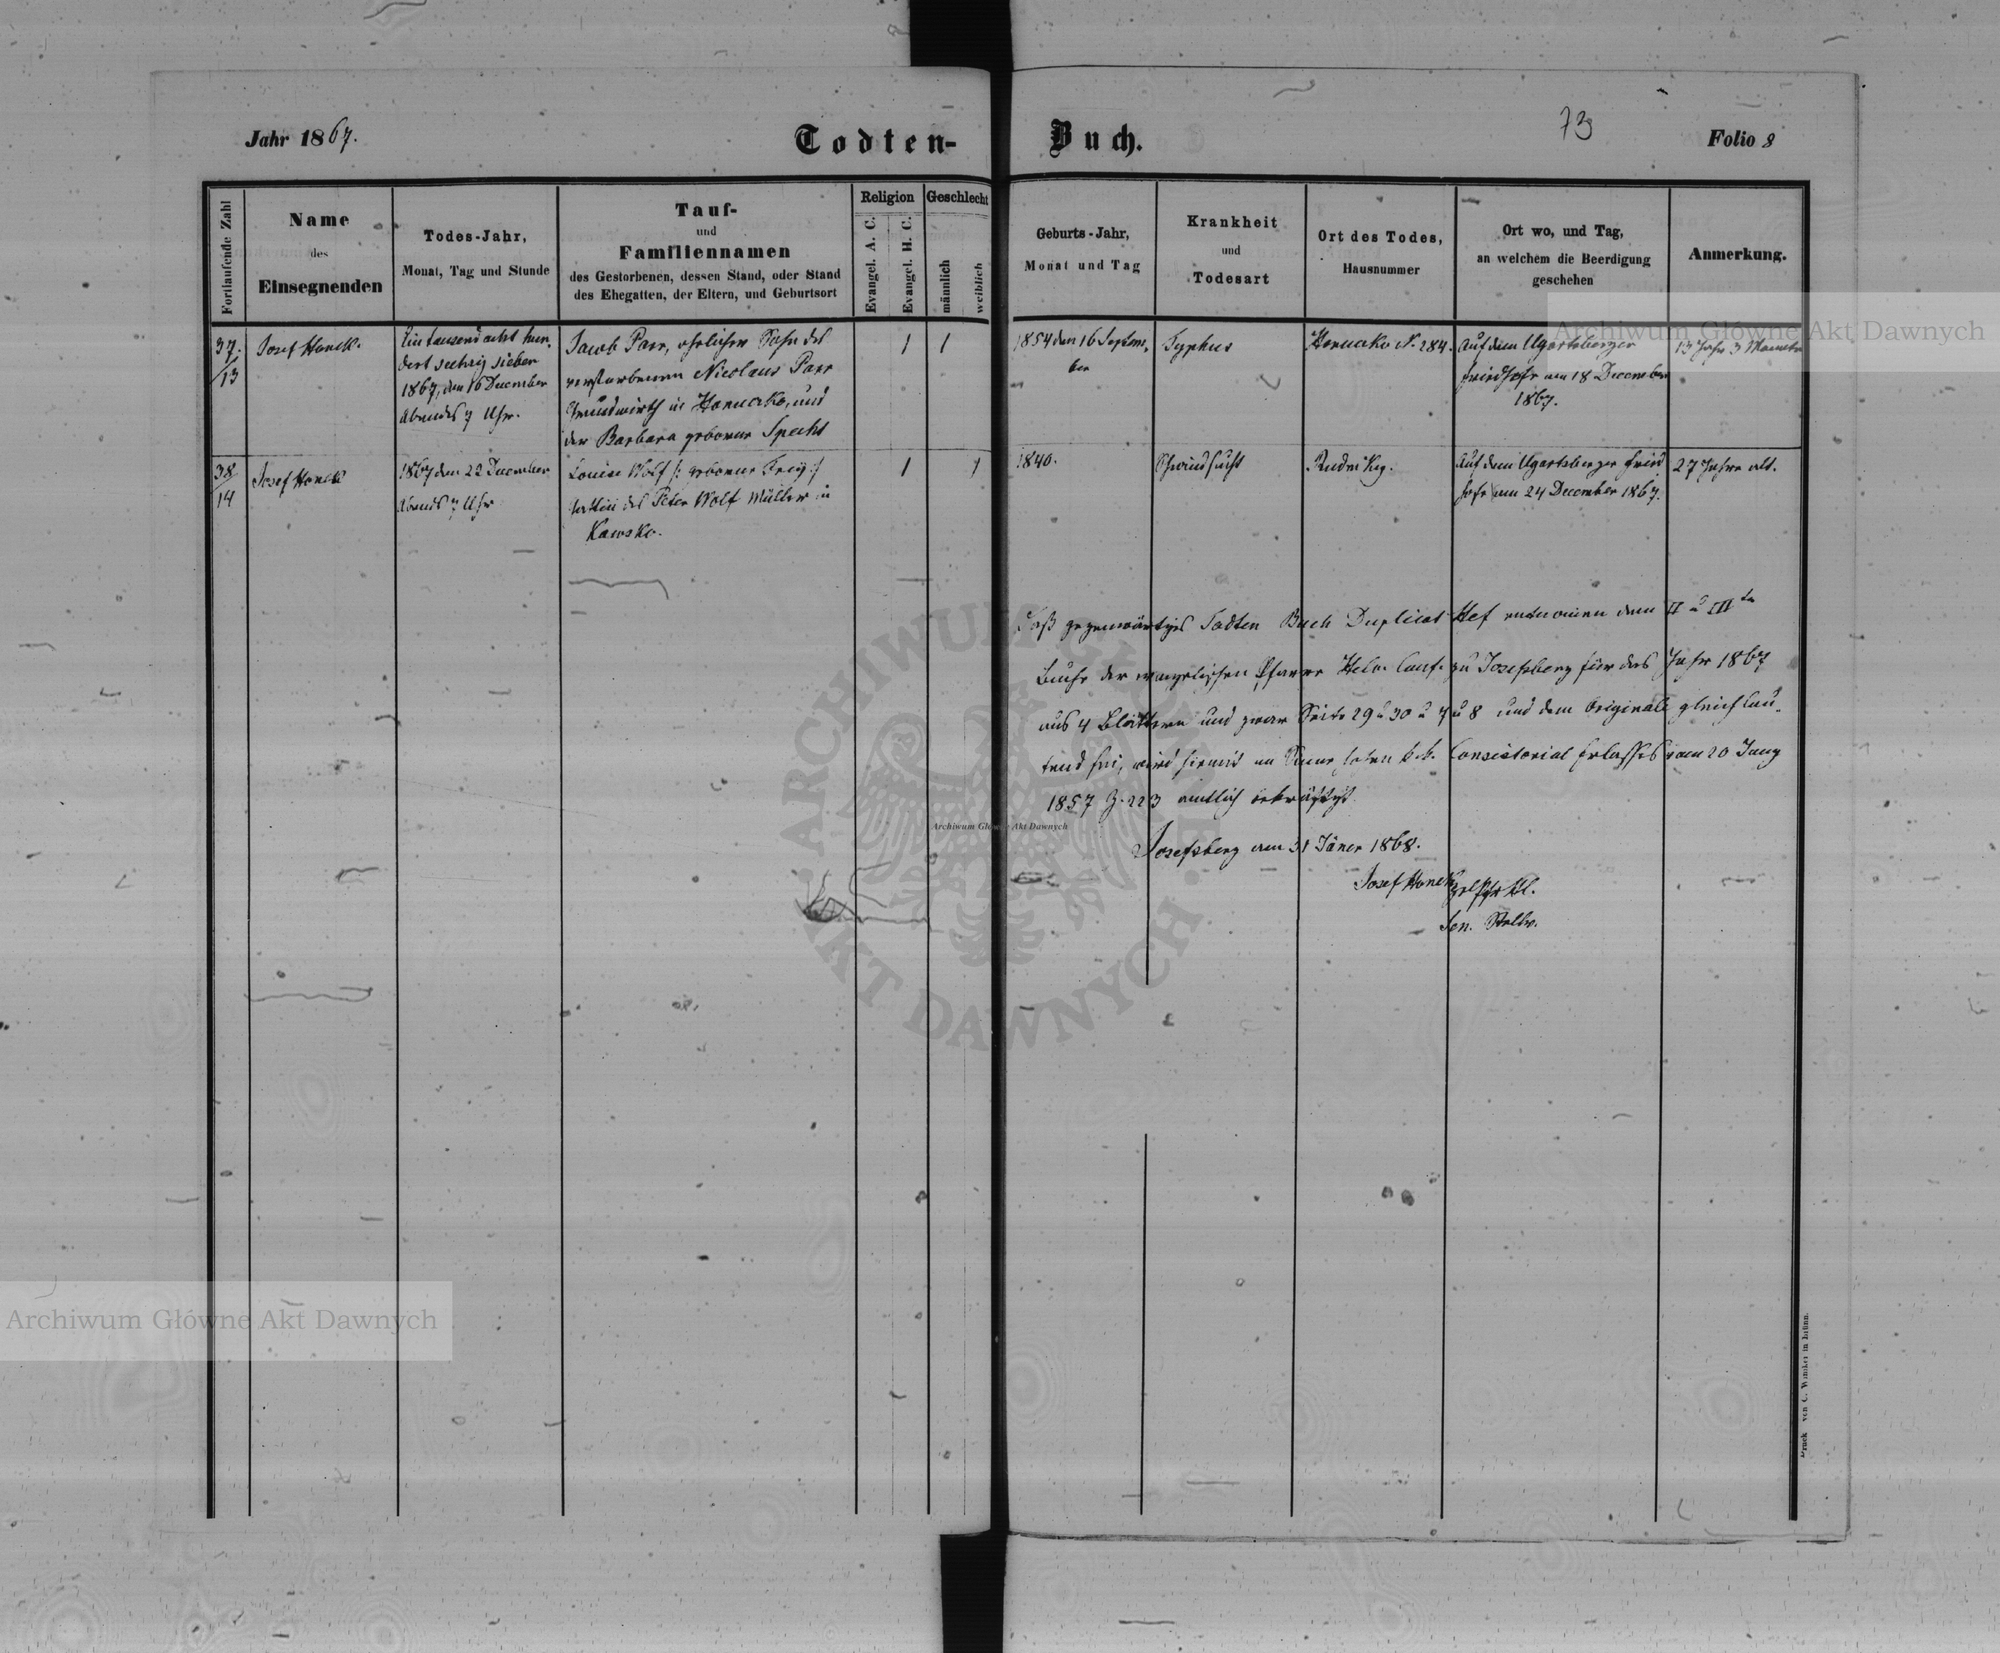 Jahr 1867.
Todten-
Buch.
73
Folio 8
Fortlaufende Zahl
Name
des
Einsegnenden
Todes-Jahr,
Monat, Tag und Stunde
Tauf-
und
Familiennamen
des Gestorbenen, dessen Stand, oder Stand
des Ehegatten, der Eltern, und Geburtsort
Religion
Evangel. A. C.
Evangel. H. C.
Geschlecht
männlich
weiblich
Geburts-Jahr,
Monat und Tag
Krankheit
und
Todesart
Ort des Todes,
Hausnummer
Ort wo, und Tag,
an welchem die Beerdigung
geschehen
Anmerkung.
37.
13
Josef Honek.
Ein tausend acht hun-
dert sechzig sieben
1867, den 16 December
Abends 7 Uhr.
Jacob Parr, ehelicher Sohn des
verstorbenen Nicolaus Parr
Grundwirth in Horucko, und
der Barbara geborene Specht
1
1
1854 den 16 Septem-
ber
Typhus
Horucko N. 284.
Auf dem Ugartsberger
Friedhofe am 18 December
1867.
13 Jahr 3 Monate
38
14
Josef Honek
1867 den 22 December
Abends 7 Uhr
Louise Wolf /: geborene Frey :/
Gattin des Peter Wolf Müller in
Kawsko.
1
1
1840.
Schwindsucht
Rudniky.
Auf dem Ugartsberger Fried
hofe am 24 December 1867.
27 Jahre alt.
Daß gegenwärtiges Todten Buch Duplicat entnomen dem II u III te
Buche der evangelischen Pfarre Helv. Conf. zu Josefsberg für das Jahr 1867
aus 4 Blättern und zwar Seite 29 u 30 u 7 u 8 und dem Originale gleichlau-
tend sei, wird hiemit im Sinne hohen k.k. Consistorial Erlasses vom 20 Juny
1857 Z. 223 amtlich bekräftigt.
Josefsberg am 31 Jäner 1868.
Josef Honek
Sen. Stellv.
Druck von C. Winiker in Brünn.
Archiwum Główne Akt Dawnych
Archiwum Główne Akt Dawnych
Archiwum Główne Akt Dawnych
ARCHIWUM GŁÓWNE
AKT DAWNYCH